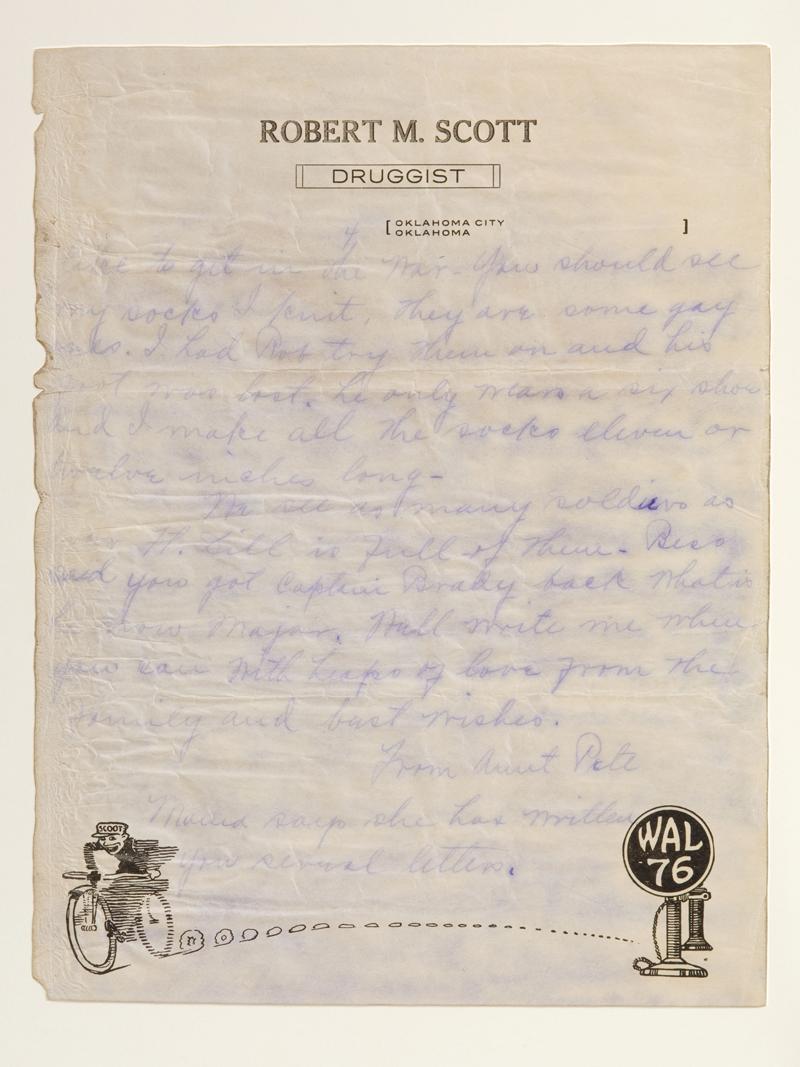 ROBERT M. SCOTT
DRUGGIST
[ OKLAHOMA CITY ]
OKLAHOMA
4
like to get in the War - You should see
my socks I knit, they are some gay
ones. I had Rob try them on and his
foot was lost. he only wears a six shoe
and I make all the socks eleven or
twelve inches long -
We see as many soldiers as
Ft. Sill is full of them -
said you got Captain Brady back what is
he now Major. Well write me when
you can with heaps of love from the
family and best wishes.
From Aunt Pete
Mama says she has written
you several letters.
SCOOT
WAL
76